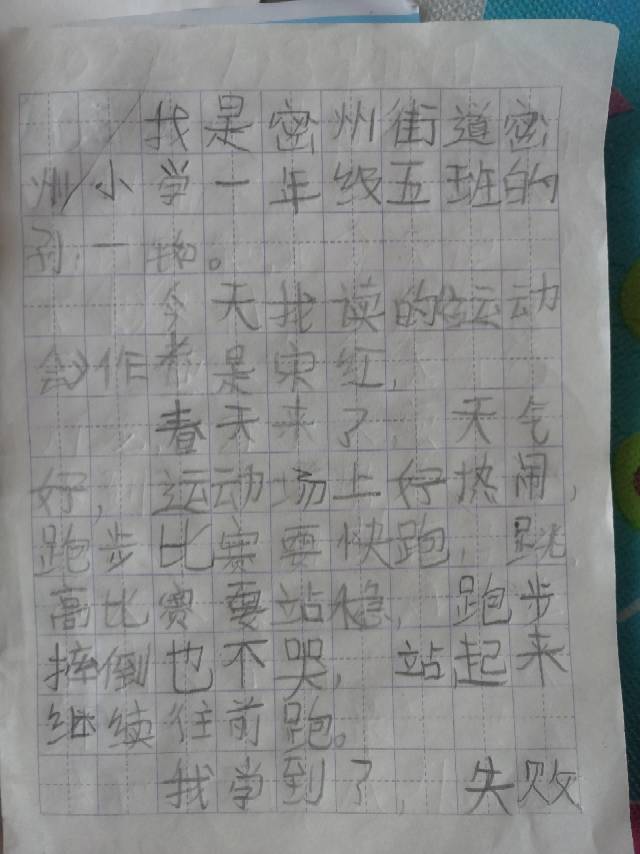 我是密州街道密
州小学一年级五班的
孙一
今天我读的《运动
会》作者是宋红,
春天来了,天气
好,运动场上好热闹,
跑步比赛要快跑,跳
高比赛要站稳,跑步
摔倒也不哭,站起来
继续往前跑。
我学到了,失败